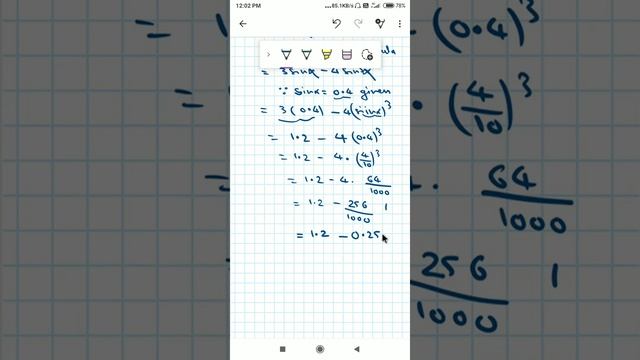 12:02 PM ...85.1KB/s 78%
ula
= 3sinα - 4sin³α
∵ sinα = 0.4 given
= 3(0.4) - 4(sinα)³
= 1.2 - 4(0.4)³
= 1.2 - 4·(4/10)³
= 1.2 - 4· 64/1000
= 1.2 - 256/1000 1
= 1.2 - 0.25